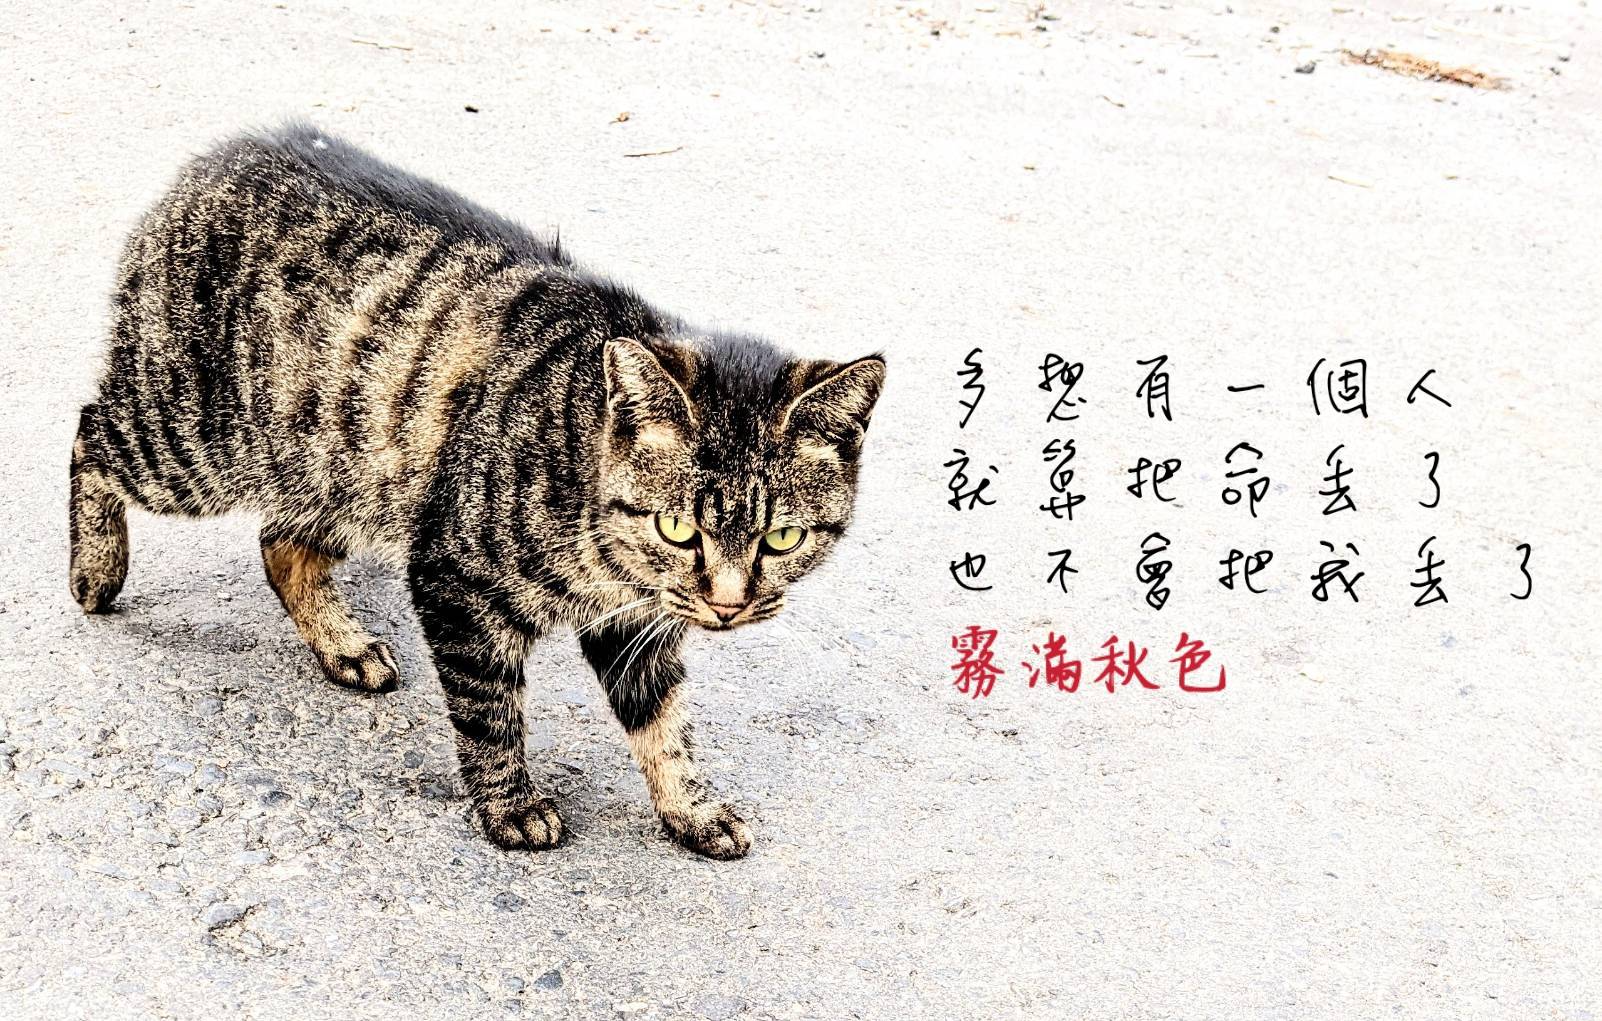 多想有一個人
就算把命丢了
也不會把我丢了
霧滿秋色